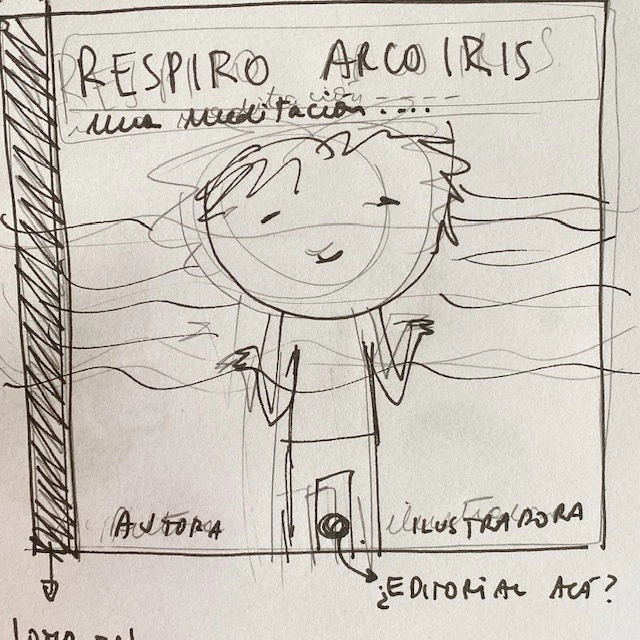 RESPIRO ARCOIRIS
una meditación....
AUTORA
ILUSTRADORA
¿EDITORIAL ACÁ?